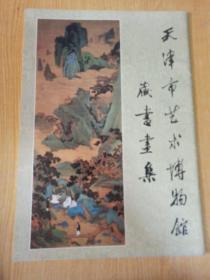 天津市艺术博物馆
藏书画集